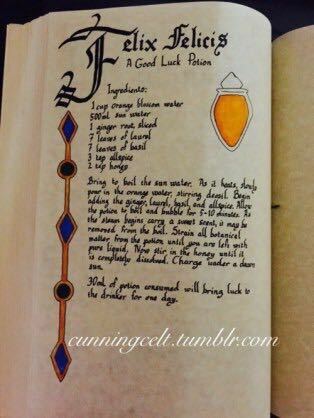 Felix Felicis
A Good Luck Potion
Ingredients:
1 cup orange blossom water
500ml sun water
1 ginger root, sliced
7 leaves of laurel
7 leaves of basil
3 tsp allspice
2 tsp honey
Bring to boil the sun water. As it heats, slowly
pour in the orange water, stirring deosil. Begin
adding the ginger, laurel, basil, and allspice. Allow
the potion to boil and bubble for 5-10 minutes. As
the steam begins carry a sweet scent, it may be
removed from the boil. Strain all botanical
matter from the potion until you are left with
pure liquid. Now stir in the honey until it
is completely dissolved. Charge under a dawn
sun.
30mL of potion consumed will bring luck to
the drinker for one day.
cunningcelt.tumblr.com